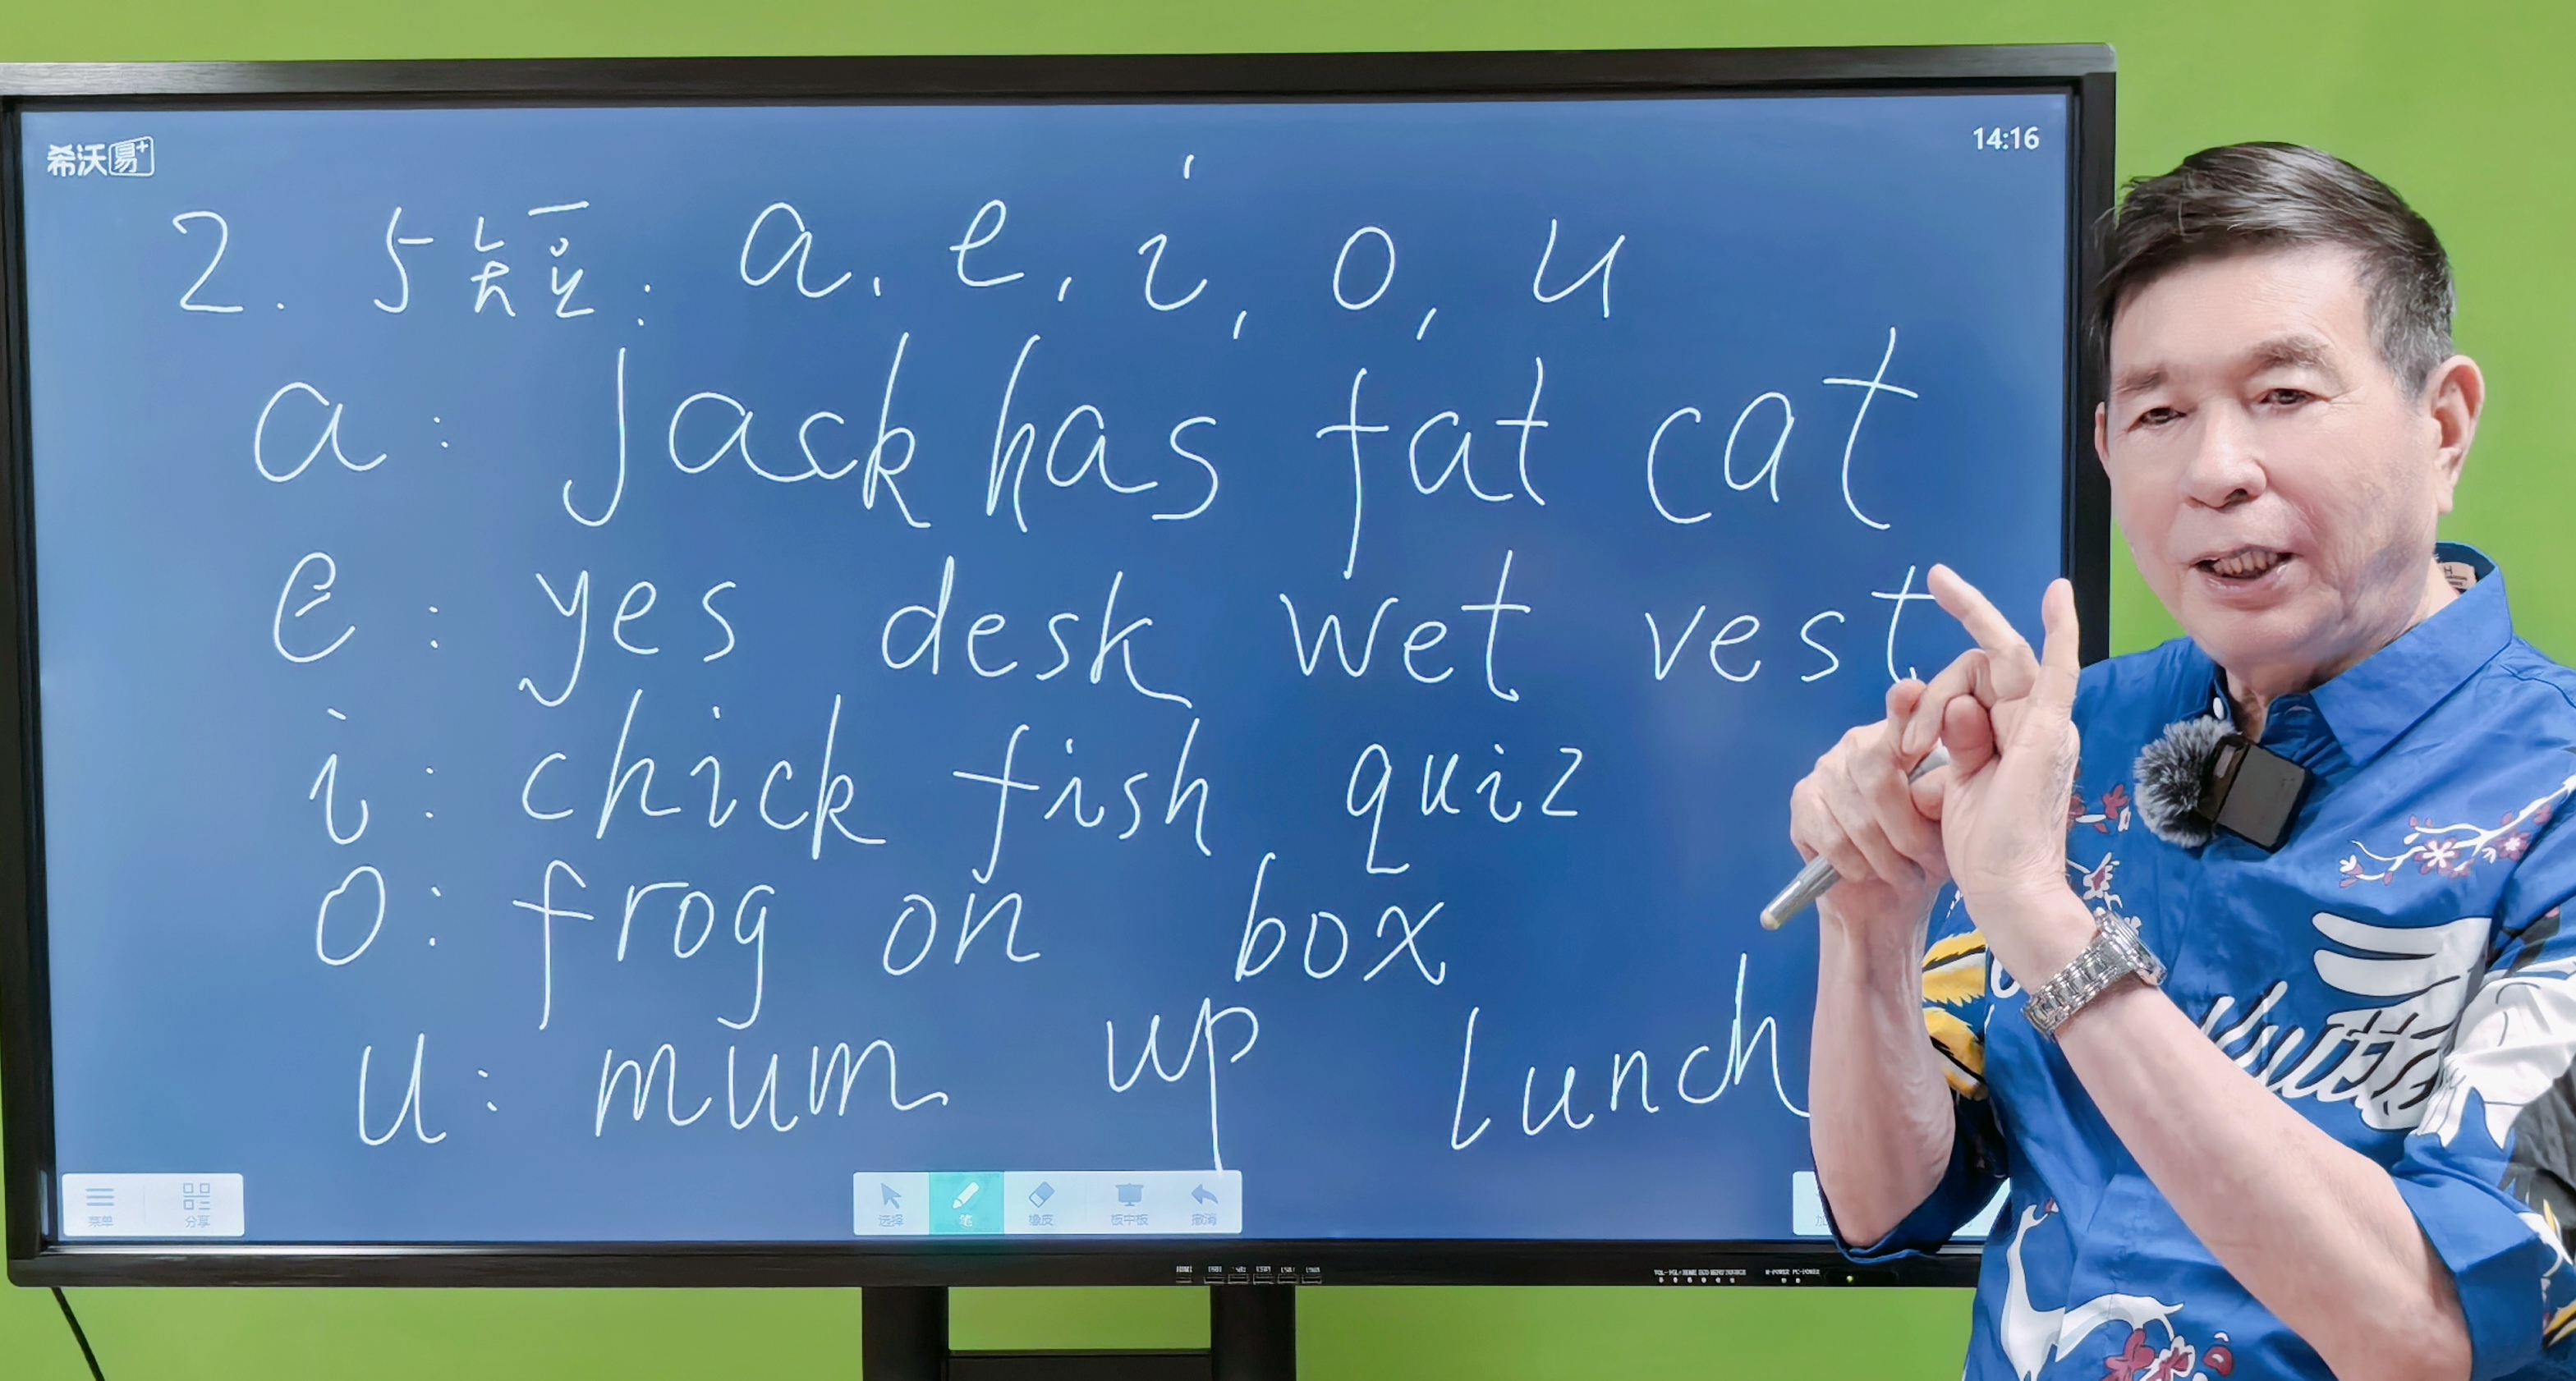 希沃易+
14:16
2. 5短: a. e, i, o, u
a: Jack has fat cat
e: yes desk wet vest
i: chick fish quiz
o: frog on box
u: mum up lunch
菜单 分享 选择 笔 橡皮 板中板 撤消